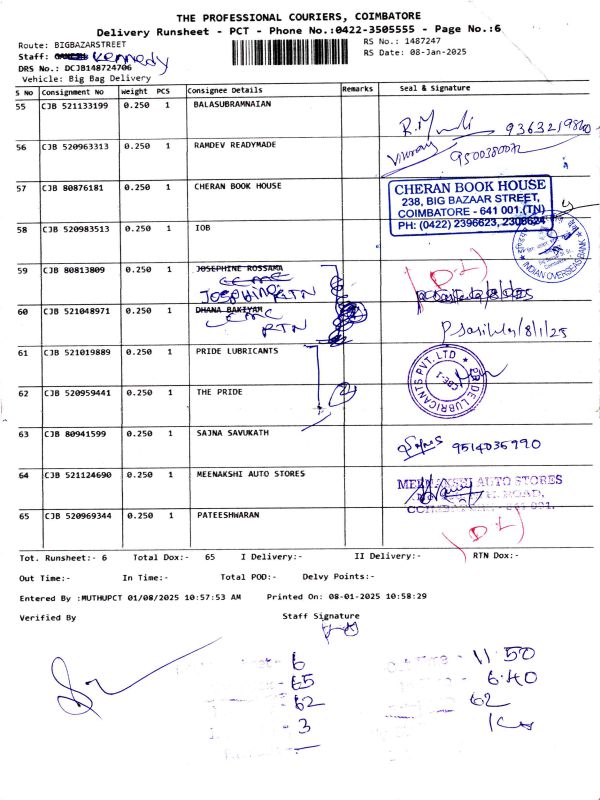 THE PROFESSIONAL COURIERS, COIMBATORE
Delivery Runsheet - PCT - Phone No.:0422-3505555 - Page No.:6
Route: BIGBAZARSTREET
RS No.: 1487247
Staff: Kennedy
RS Date: 08-Jan-2025
DRS No.: DCJB148724706
Vehicle: Big Bag Delivery
S No Consignment No Weight PCS Consignee Details Remarks Seal & Signature
55 CJB 521133199 0.250 1 BALASUBRAMNAIAN
56 CJB 520963313 0.250 1 RAMDEV READYMADE
9500380072
57 CJB 80876181 0.250 1 CHERAN BOOK HOUSE
CHERAN BOOK HOUSE
238, BIG BAZAAR STREET,
COIMBATORE - 641 001.(TN)
PH: (0422) 2396623, 2308624
58 CJB 520983513 0.250 1 IOB
INDIAN OVERSEAS BANK
59 CJB 80813809 0.250 1 JOSEPHINE ROSSAMA
RTN
(D.L)
60 CJB 521048971 0.250 1 DHANA BAKIYAM
RTN
P Sasikala 8/1/25
61 CJB 521019889 0.250 1 PRIDE LUBRICANTS
PRIDE LUBRICANTS PVT. LTD
CBE-1
62 CJB 520959441 0.250 1 THE PRIDE
2
63 CJB 80941599 0.250 1 SAJNA SAVUKATH
9514035990
64 CJB 521124690 0.250 1 MEENAKSHI AUTO STORES
MEENAKSHI AUTO STORES
65 CJB 520969344 0.250 1 PATEESHWARAN
(D.L)
Tot. Runsheet:- 6 Total Dox:- 65 I Delivery:- II Delivery:- RTN Dox:-
Out Time:- In Time:- Total POD:- Delvy Points:-
Entered By :MUTHUPCT 01/08/2025 10:57:53 AM Printed On: 08-01-2025 10:58:29
Verified By Staff Signature
6 11.50
65 6.40
62 62
3